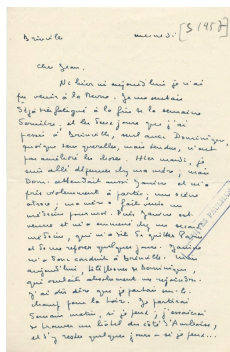 [S 1957]
Brinville mercredi
Cher Jean.
Ni hier ni aujourd'hui je n'ai
pu venir à la Revue. Je me sentais
déjà très fatigué à la fin de la semaine
dernière, et les deux jours que j'ai
passés à Brinville, seul avec Dominique,
quoique sans querelles, mais tendus, n'ont
pas amélioré les choses. Hier mardi, je
suis allé déjeuner chez ma mère ; mais
Dom. attendait aussi
pris violemment à partie, une scène
atroce ; ma mère a fait venir un
médecin pour moi. Puis
venue et m'a emmené chez un second
médecin, qui m'a dit de quitter Paris
et de me reposer quelques jours.
m'a donc conduit à Brinville. Mais
aujourd'hui, téléphone de Dominique,
qui voulait absolument me rejoindre.
J'ai dû dire que je partais le
pour la voir. Je partirai
demain matin, si je peux, j'essaierai
de trouver un hôtel du côté d'Amboise,
et d'y rester quelques jours – si je peux...